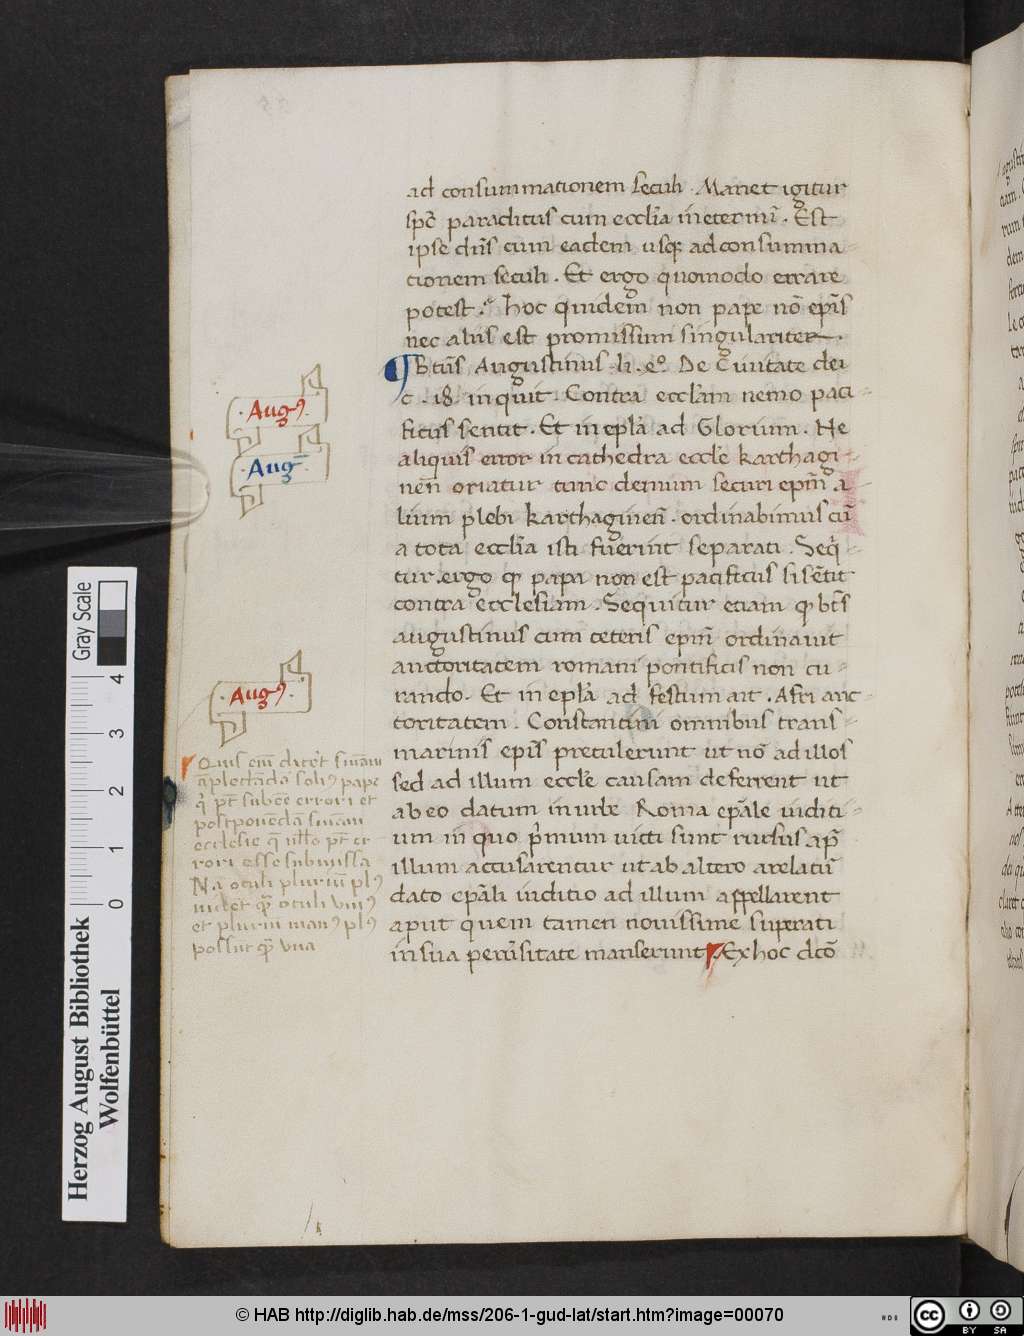 ad consummationem seculi . Manet igitur
spc̄ paraclitus cum eccl̄ia in eternū . Est
ipse dn̄s cum eadem usq ad consumma
tionem seculi . Et ergo quomodo errare
potest . hoc quidem non pape nō ep̄is
nec aliis est promissum singulariter .
Btūs Augustinus . li . Eº . De Ciuitate dei
c . 18 . inquit . Contra eccl̄am nemo paci
ficus sentit . Et in epl̄a ad Glorium . Ne
aliquis error in cathedra eccl̄e karthagi
nen̄ oriatur tunc demum securi epm̄ a
lium plebi karthaginen̄ . ordinabimus cū
a tota eccl̄ia isti fuerint separati . Seq̄
tur . ergo q papa non est pacificus si sētit
contra ecclesiam . Sequitur etiam q bt̄s
augustinus cum ceteris epīs ordinauit
auctoritatem romani pontificis non cu
rando . Et in epl̄a ad festium ait . Afri auc
toritatem . Constantini omnibus trans
marinis epīs pretulerunt ut nō ad illos
sed ad illum eccl̄e causam deferrent ut
ab eo datum in urbe Roma epāle iudici
um in quo p̄mum uicti sunt rursus ap̄
illum accusarentur ut ab altero arelatū
dato epāli iuditio ad illum appellarent
aput quem tamen nouissime superati
in sua peruersitate manserunt Ex hoc dcō
Aug9
Aug
Aug9
postponēdā sniam
ecclesie q nllo pt̄ er
rori esse submissa
Na oculi plurium pl9
uidet q̄ oculi uni9
et plurium man9 pl9
possūt q̄ una
Herzog August Bibliothek
Wolfenbüttel
Gray Scale
0 1 2 3 4
© HAB http://diglib.hab.de/mss/206-1-gud-lat/start.htm?image=00070
cc BY SA